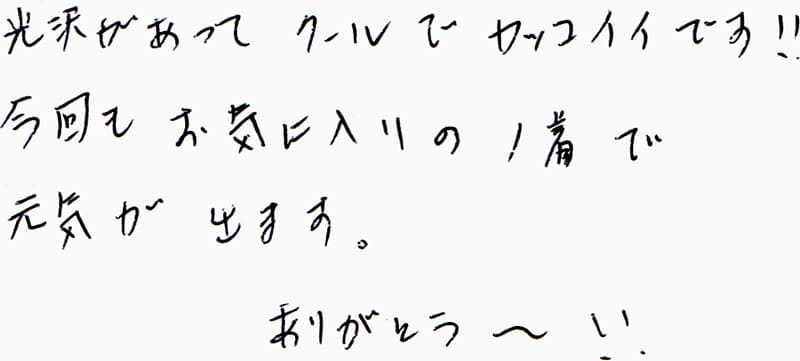 光沢があって クールで カッコイイです!!
今回も お気に入りの 1着で
元気が 出ます。
ありがとう〜 !!